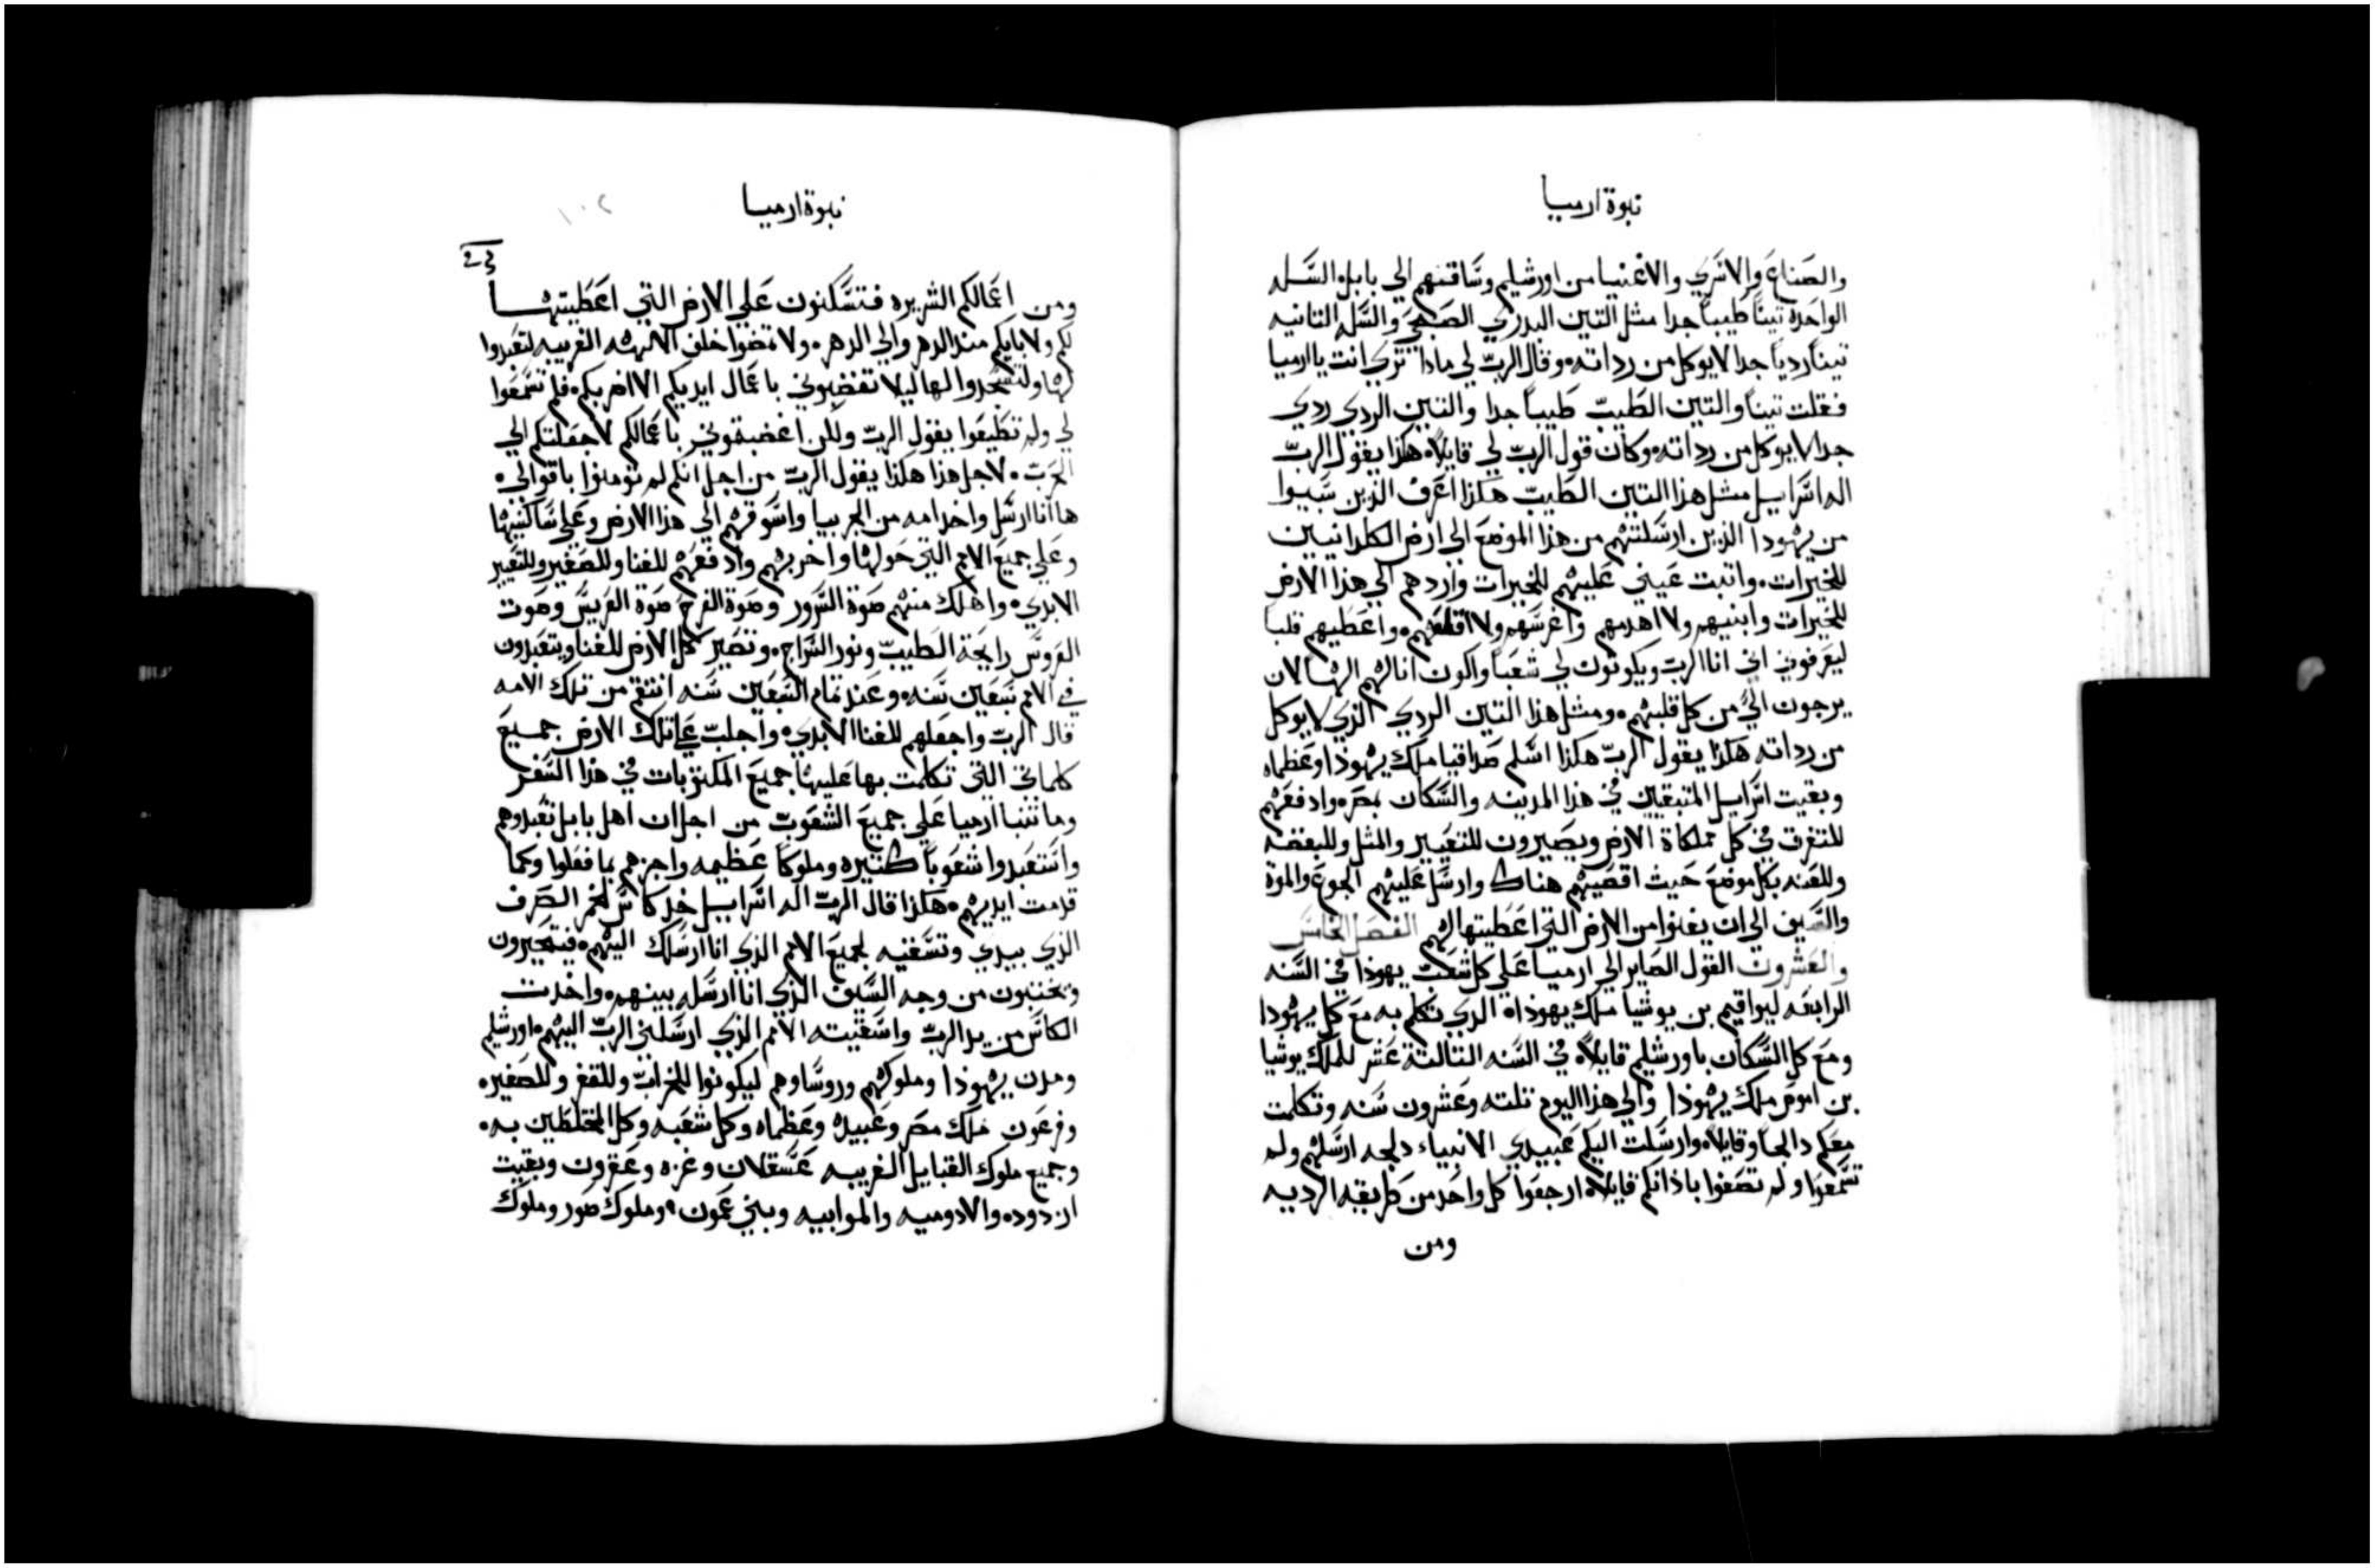 نبوة ارميا
والصناع والاسري والاغنيا من اورشليم وساقتهم الي بابل السله
الواحده تيناً طيباً جدا مثل التين البدري الصيفي والسله التانيه
تيناً ردياً جدا لا يوكل من رداته وقال الرب لي مادا تري انت يا ارميا
فقلت تيناً والتين الطيب طيباً جدا والتين الردي ردي
جدا لا يوكل من رداته وكان قول الرب لي قايلاً هكذا يقول الرب
اله اسراييل مثل هذا التين الطيب هكذا اعرف الذين سبيوا
من يهودا الذين ارسلتهم من هذا الموضع الي ارض الكلدانيين
للخيرات واتبت عيني عليهم للخيرات واردهم الي هذا الارض
للخيرات وابنيهم ولا اهدمهم واغرسهم ولا اقلعهم واعطيهم قلباً
ليعرفوني اني انا الرب ويكونون لي شعباً واكون انا لهم الهاً لان
يرجعون الي من كل قلبهم ومثل هذا التين الردي الذي لا يوكل
من رداته هكذا يقول الرب هكذا اسلم صداقيا ملك يهوذا وعظماه
وبقيت اسراييل المتبقيين في هذا المدينه والسكان بمصر وادفعهم
للتفرق في كل مملكاة الارض ويصيرون للتعيير والمثل وللبغضه
وللعنه بكل موضع حيث اقصيهم هناك وارسل عليهم الجوع والموة
والسيف الي ان يفنوا من الارض التي اعطيتها لهم الفصل الخامس
والعشرون القول الصاير الي ارميا علي كل شعب يهوذا في السنه
الرابعه ليواقيم بن يوشيا ملك يهوذا الذي تكلم به مع كل يهودا
ومع كل السكان باورشليم قايلاً في السنه التالتة عشر للملك يوشيا
بن اموص ملك يهوذا والي هذا اليوم تلته وعشرون سنه وتكلمت
معكم دالجاً وقايلاً وارسلت اليكم عبيدي الانبياء دلجه ارسلهم ولم
تسمعوا ولم تصغوا باذانكم قايلاً ارجعوا كل واحد من طريقه الرديه
ومن
نبوة ارميا
١٠٢
ومن اعمالكم الشريره فتسكنون علي الارض التي اعطيتها
لكم ولابايكم منذ الدهر والي الدهر ولا تمضوا خلف الالهه الغريبه لتعبدوا
لها ولتسجدوا لها ليلا تغضبوني باعمال ايديكم الا اضر بكم فلم تسمعوا
لي ولم تطيعوا يقول الرب ولكن اغضبتموني باعمالكم لاجعلتكم الي
الحرب لاجل هذا هكذا يقول الرب من اجل انكم لم تومنوا باقوالي
ها انا ارسل واخد امه من الجربيا واسوقهم الي هذا الارض وعلي ساكنيها
وعلي جميع الامم التي حولها واخربهم وادفعهم للفنا وللصفير وللتعيير
الابدي واهلك منهم صوة السرور وصوة الفرح صوة العريس وصوت
العروس رايحة الطيب ونور السراج وتصير كل الارض للفنا ويتعبدون
في الامم سبعين سنه وعند تمام السبعين سنه انتقم من تلك الامه
قال الرب واجعلهم للفنا الابدي واجلب علي تلك الارض جميع
كلماتي التي تكلمت بها عليها جميع المكتوبات في هذا السفر
وما تنبا ارميا علي جميع الشعوب من اجل ان اهل بابل تعبدوهم
واستعبدوا شعوباً كتيره وملوكاً عظيمه واجزهم بما فعلوا وكما
قدمت ايديهم هكذا قال الرب اله اسراييل خد كاس الخمر الصرف
الذي بيدي وتسقيه لجميع الامم الذي انا ارسلك اليهم فيتحيرون
ويختبون من وجه السيف الذي انا ارسله بينهم واخدت
الكاس من يد الرب واسقيته الامم الذي ارسلني الرب اليهم اورشليم
ومدن يهوذا وملوكهم وروساوهم ليكونوا للخراب وللقفر وللصفير
وفرعون ملك مصر وعبيده وعظماه وكل شعبه وكل المختلطين به
وجميع ملوك القبايل الغريبه عسقلان وغزه وعقرون وبقيت
ازدوده والادوميه والموابيه وبني عمون وملوك صور وملوك